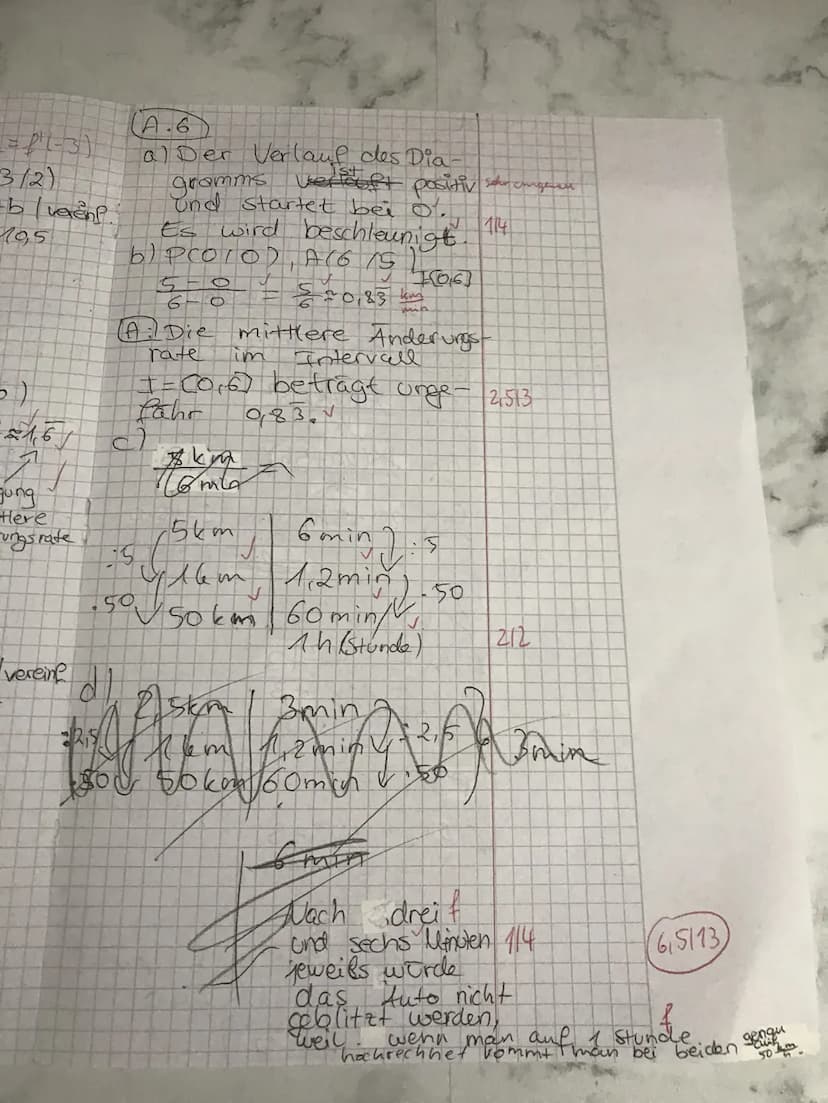 = f'(-3)
3/2)
-b / vereinf.
19,5
≈1,6
gung
ttlere
ungsrate
vereinf
A.6
a) Der Verlauf des Dia-
gramms verläuft ist positiv
und startet bei 0.
Es wird beschleunigt. 1/4
b) P(0/0), A(6/5) I[0,6]
5-0 / 6-0 = 5/6 ≈ 0,83 km/min
A: Die mittlere Änderungs-
rate im Intervall
I=[0,6] beträgt unge- 2,5/3
fähr 0,83.
c)
5km | 6min
:5 :5
1km | 1,2min
·50 ·50
50km | 60min/
1h (Stunde) 2/2
d)
2,5km | 3min
:2,5 1km | 1,2min :2,5 3min
·50 50km | 60min ·50
6min
Nach drei f
und sechs Minuten 1/4
jeweils würde
das Auto nicht
geblitzt werden,
weil wenn man auf 1 Stunde f
hochrechnet kommt man bei beiden genau
auf
50 km/h.
6,5/13